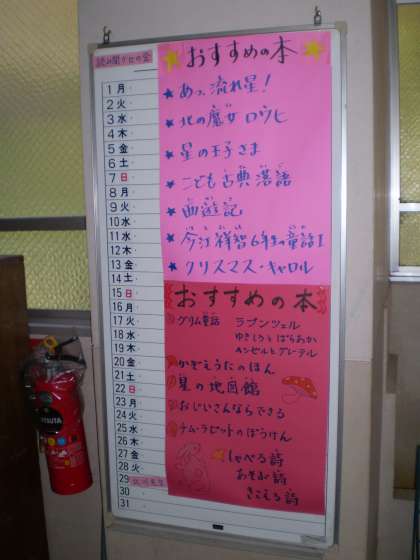 読み聞かせの会
1 月
2 火
3 水
4 木
5 金
6 土
7 日
8 月
9 火
10 水
11 木
12 金
13 土
14 土
15 日
16 月
17 火
18 水
19 木
20 金
21 土
22 日
23 月
24 火
25 水
26 木
27 金
28 火
29
30
31
おすすめの本
あっ、流れ星!
北の魔女 ロウヒ
星の王子さま
こども古典落語
西遊記
今江祥智6年生の童話1
クリスマス・キャロル
おすすめの本
グリム童話 ラプンツェル
ゆきしろとばらあか
ヘンゼルとグレーテル
かぞえうたのほん
星の地図館
おじいさんならできる
チム・ラビットのぼうけん
しゃべる詩
あそぶ詩
きこえる詩